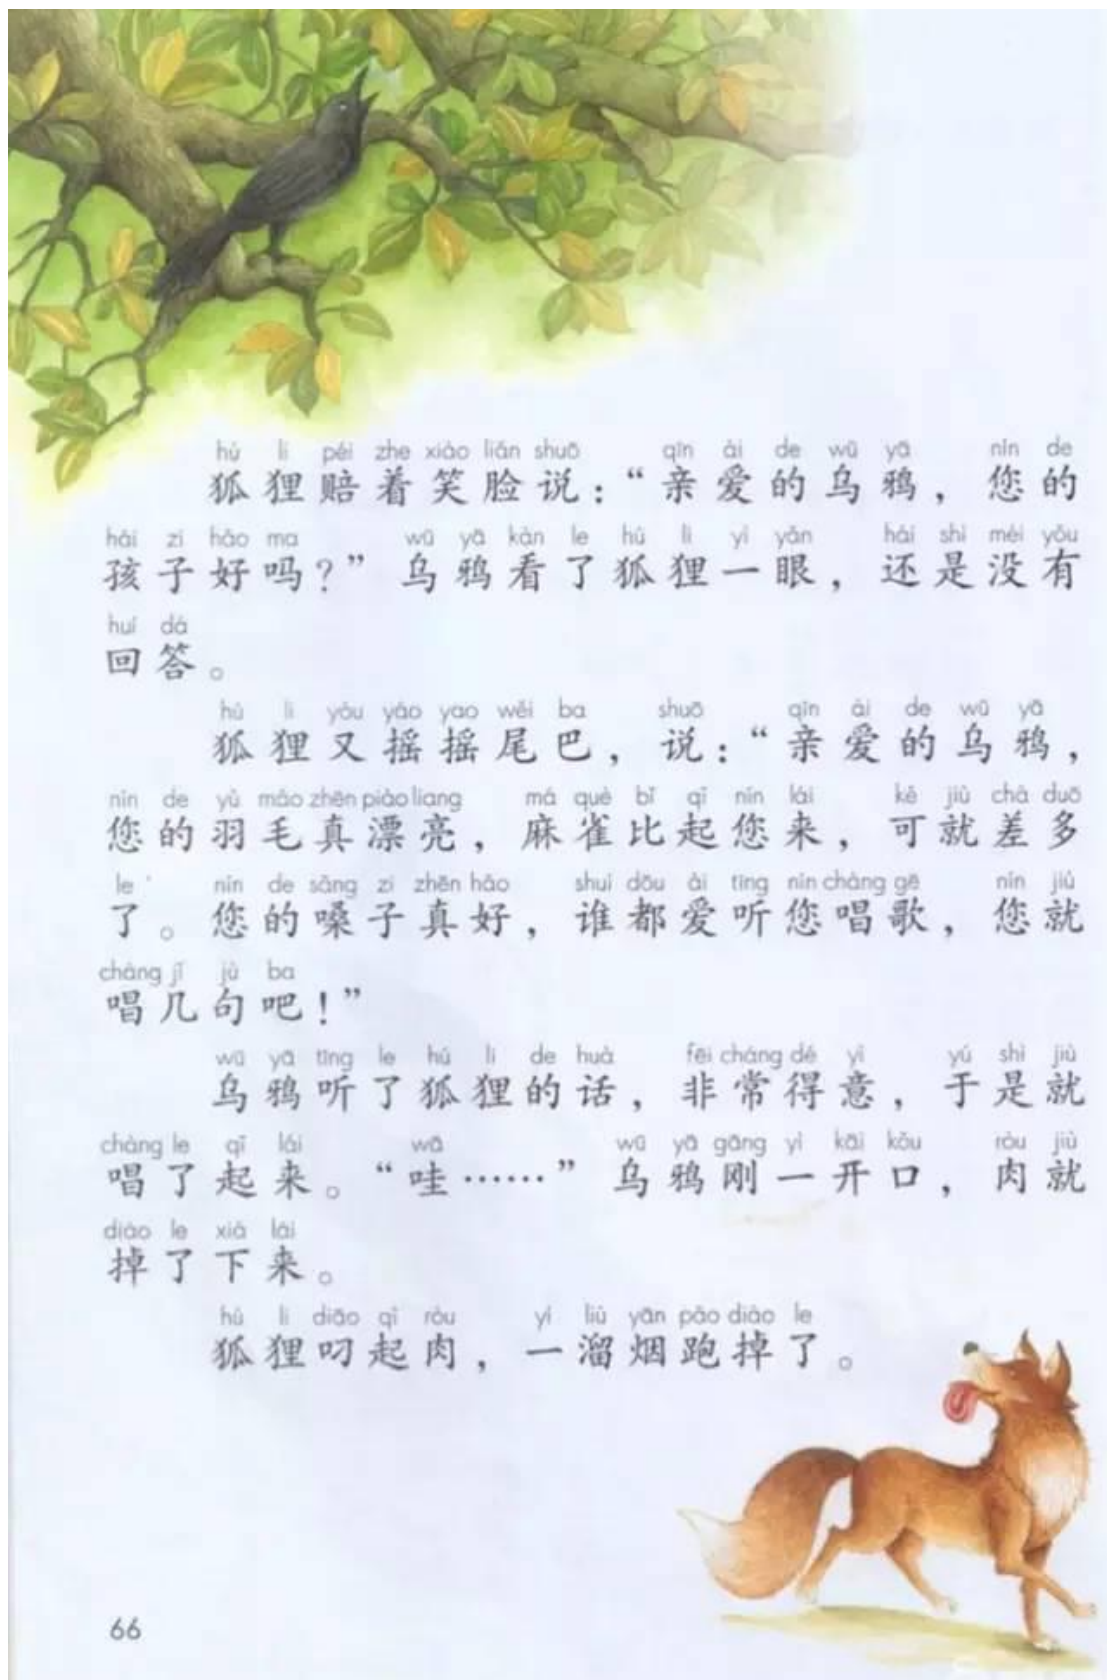 hú li péi zhe xiào liǎn shuō qīn ài de wū yā nín de
狐狸赔着笑脸说：“亲爱的乌鸦，您的
hái zi hǎo ma wū yā kàn le hú li yì yǎn hái shì méi yǒu
孩子好吗？”乌鸦看了狐狸一眼，还是没有
huí dá
回答。
hú li yòu yáo yao wěi ba shuō qīn ài de wū yā
狐狸又摇摇尾巴，说：“亲爱的乌鸦，
nín de yǔ máo zhēn piào liang má què bǐ qǐ nín lái kě jiù chà duō
您的羽毛真漂亮，麻雀比起您来，可就差多
le nín de sǎng zi zhēn hǎo shuí dōu ài tīng nín chàng gē nín jiù
了。您的嗓子真好，谁都爱听您唱歌，您就
chàng jǐ jù ba
唱几句吧！”
wū yā tīng le hú li de huà fēi cháng dé yì yú shì jiù
乌鸦听了狐狸的话，非常得意，于是就
chàng le qǐ lái wā wū yā gāng yì kāi kǒu ròu jiù
唱了起来。“哇……”乌鸦刚一开口，肉就
diào le xià lái
掉了下来。
hú li diāo qǐ ròu yí liù yān pǎo diào le
狐狸叼起肉，一溜烟跑掉了。
66